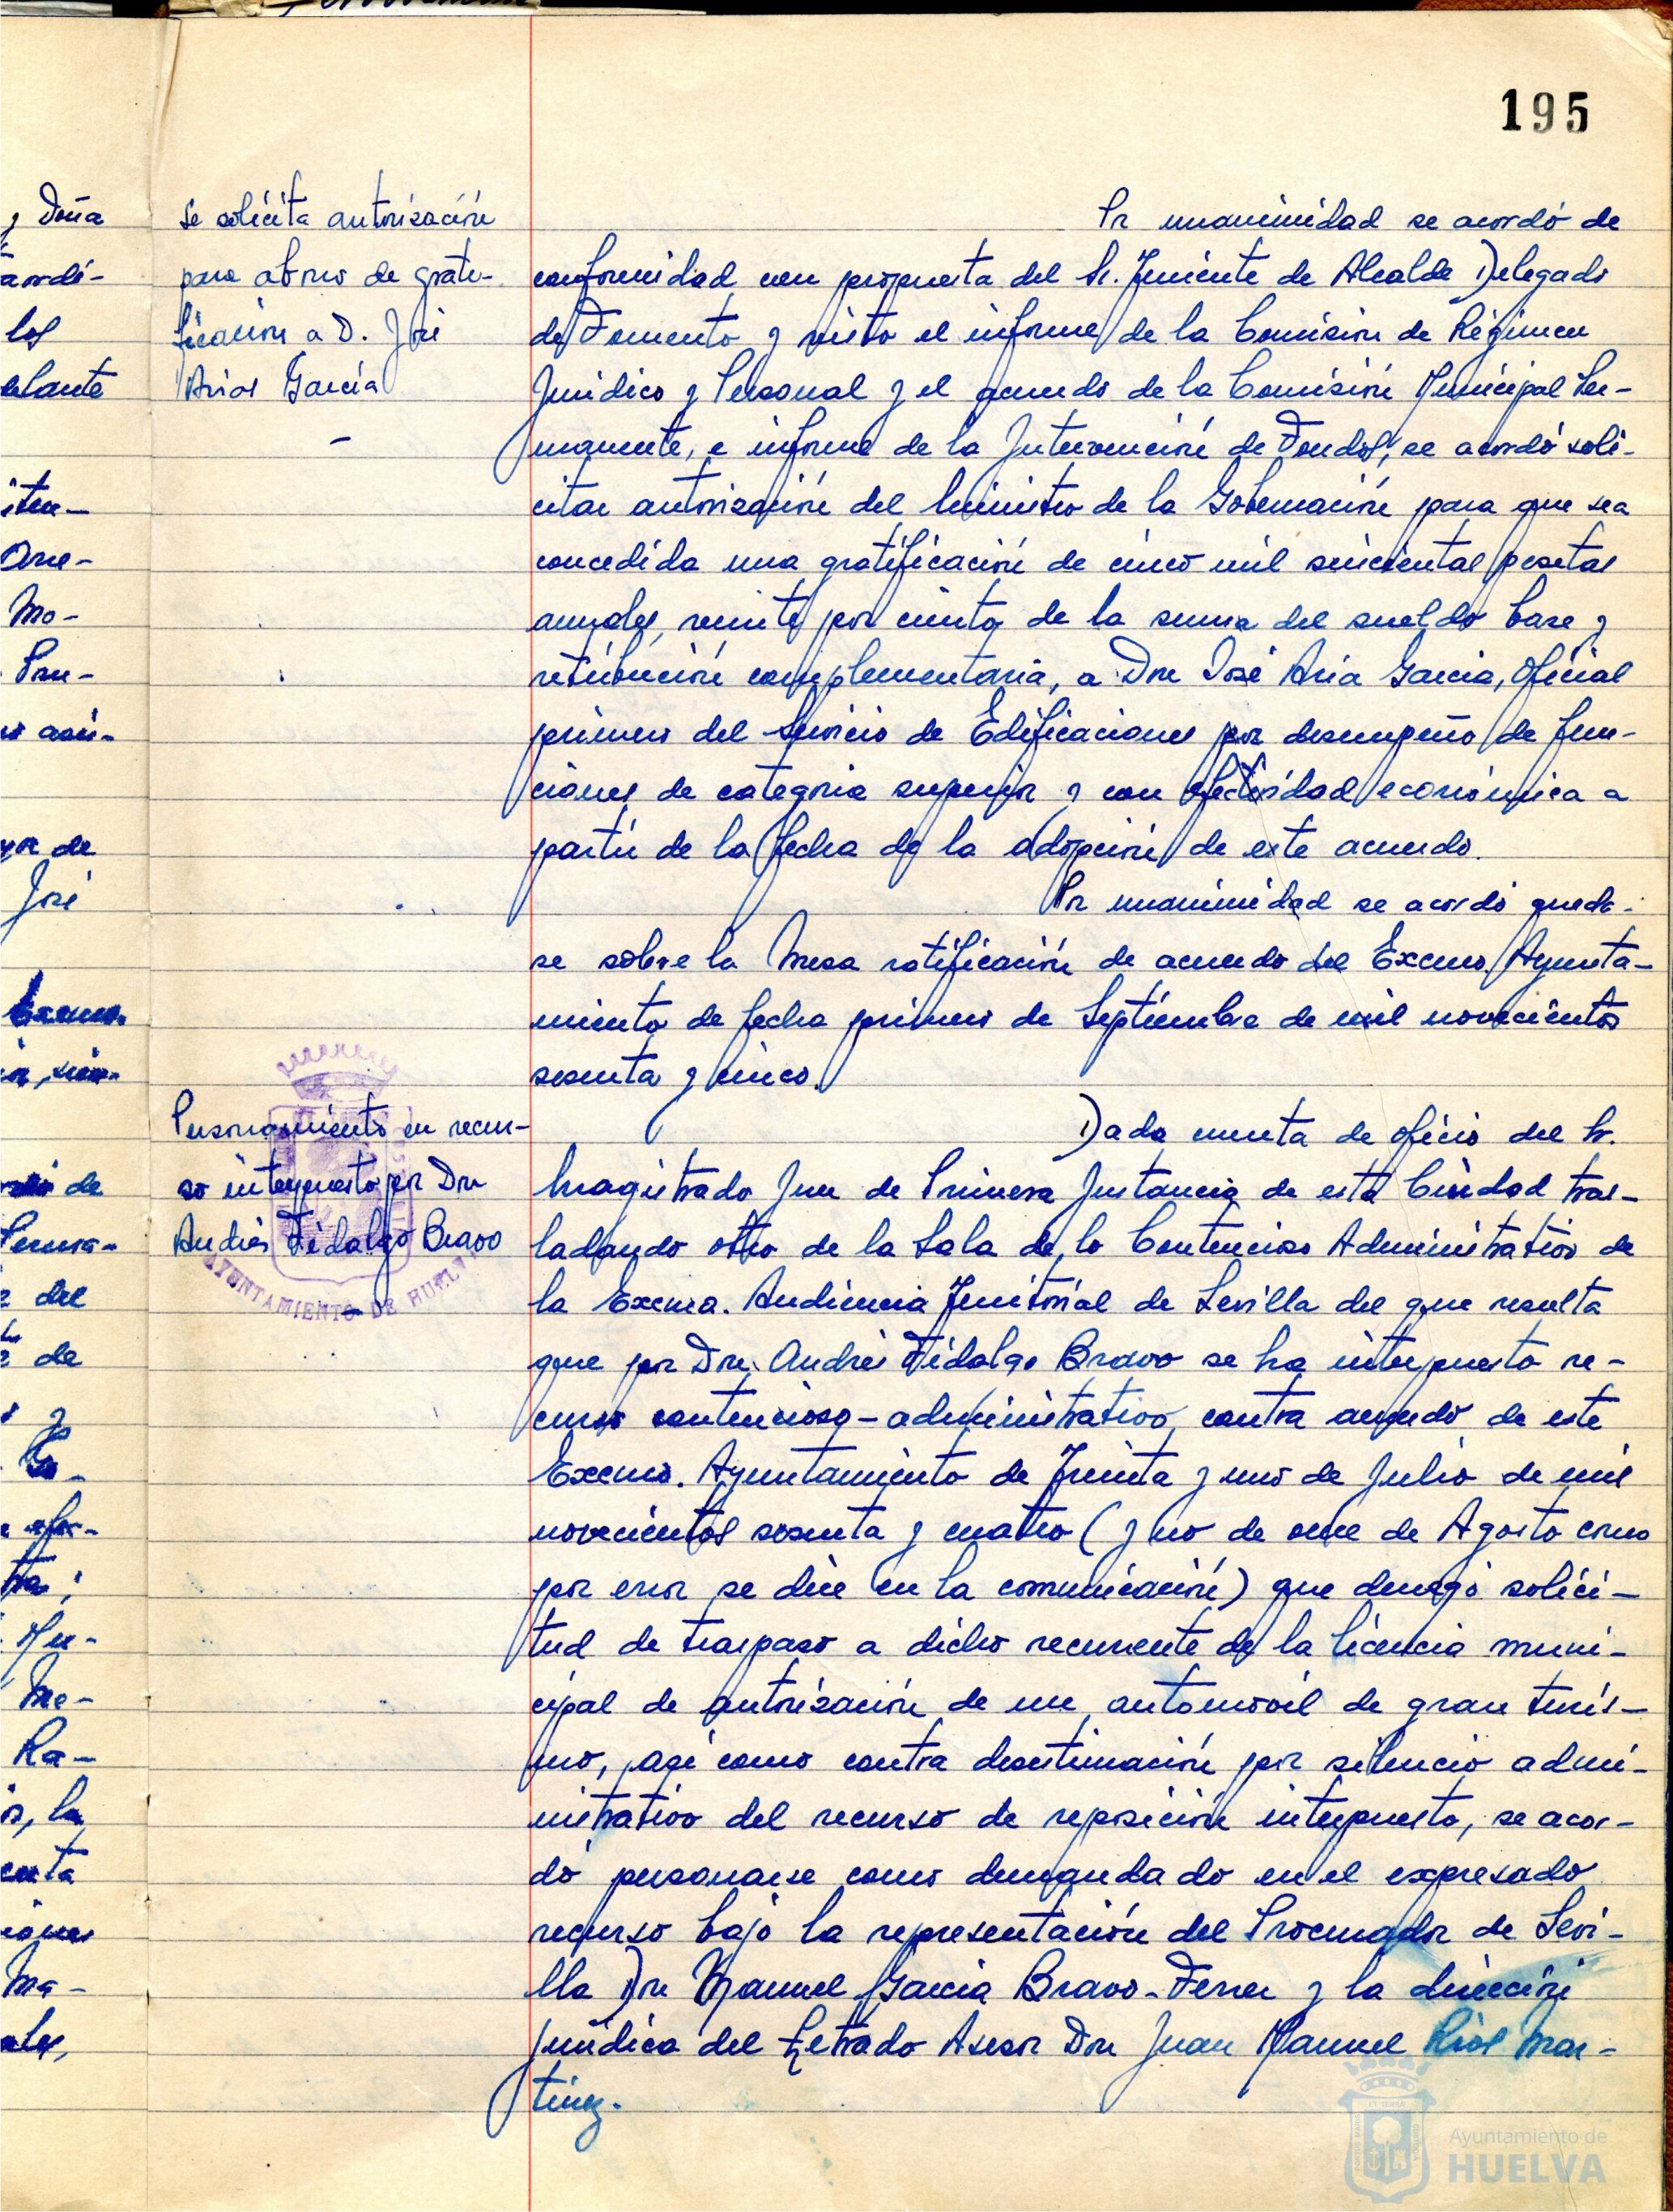 195
y Doña
acordó-
los
elante
iten-
One-
Mo-
Pau-
José
Excmo.
de
del
de
Ra-
Ma-
Se solicita autorización
para abono de grati-
ficación a D. José
Arias García
-
Por unanimidad se acordó de
conformidad con propuesta del Sr. Teniente de Alcalde Delegado
de Fomento y visto el informe de la Comisión de Régimen
Jurídico y Personal y el acuerdo de la Comisión Municipal Per-
manente, e informe de la Intervención de Fondos, se acordó soli-
citar autorización del Ministro de la Gobernación para que sea
concedida una gratificación de cinco mil seiscientas pesetas
anuales, veinte por ciento de la suma del sueldo base y
retribución complementaria, a Don José Aria García, Oficial
primero del Servicio de Edificaciones por desempeño de fun-
ciones de categoria superior y con efectividad económica a
partir de la fecha de la adopción de este acuerdo.
Por unanimidad se acordó queda-
se sobre la Mesa ratificación de acuerdo del Excmo. Ayunta-
miento de fecha primero de Septiembre de mil novecientos
sesenta y cinco.
Personamiento en recur-
so interpuesto por Don
Andrés Fidalgo Bravo
-
AYUNTAMIENTO DE HUELVA
Dada cuenta de oficio del Sr.
Magistrado Juez de Primera Instancia de esta Ciudad tras-
ladando otro de la Sala de lo Contencioso Administrativo de
la Excma. Audiencia Territorial de Sevilla del que resulta
que por Don Andrés Fidalgo Bravo se ha interpuesto re-
curso contencioso-administrativo contra acuerdo de este
Excmo. Ayuntamiento de Treinta y uno de Julio de mil
novecientos sesenta y cuatro (y no de once de Agosto como
por error se dice en la comunicación) que denegó solici-
tud de traspaso a dicho recurrente de la licencia muni-
cipal de autorización de un automóvil de gran turis-
mo, así como contra desestimación por silencio admi-
nistrativo del recurso de reposición interpuesto, se acor-
dó personarse como demandado en el expresado
recurso bajo la representación del Procurador de Sevi-
lla Don Manuel García Bravo-Ferrer y la dirección
jurídica del Letrado Asesor Don Juan Manuel Rios Mar-
tínez.
Ayuntamiento de
HUELVA